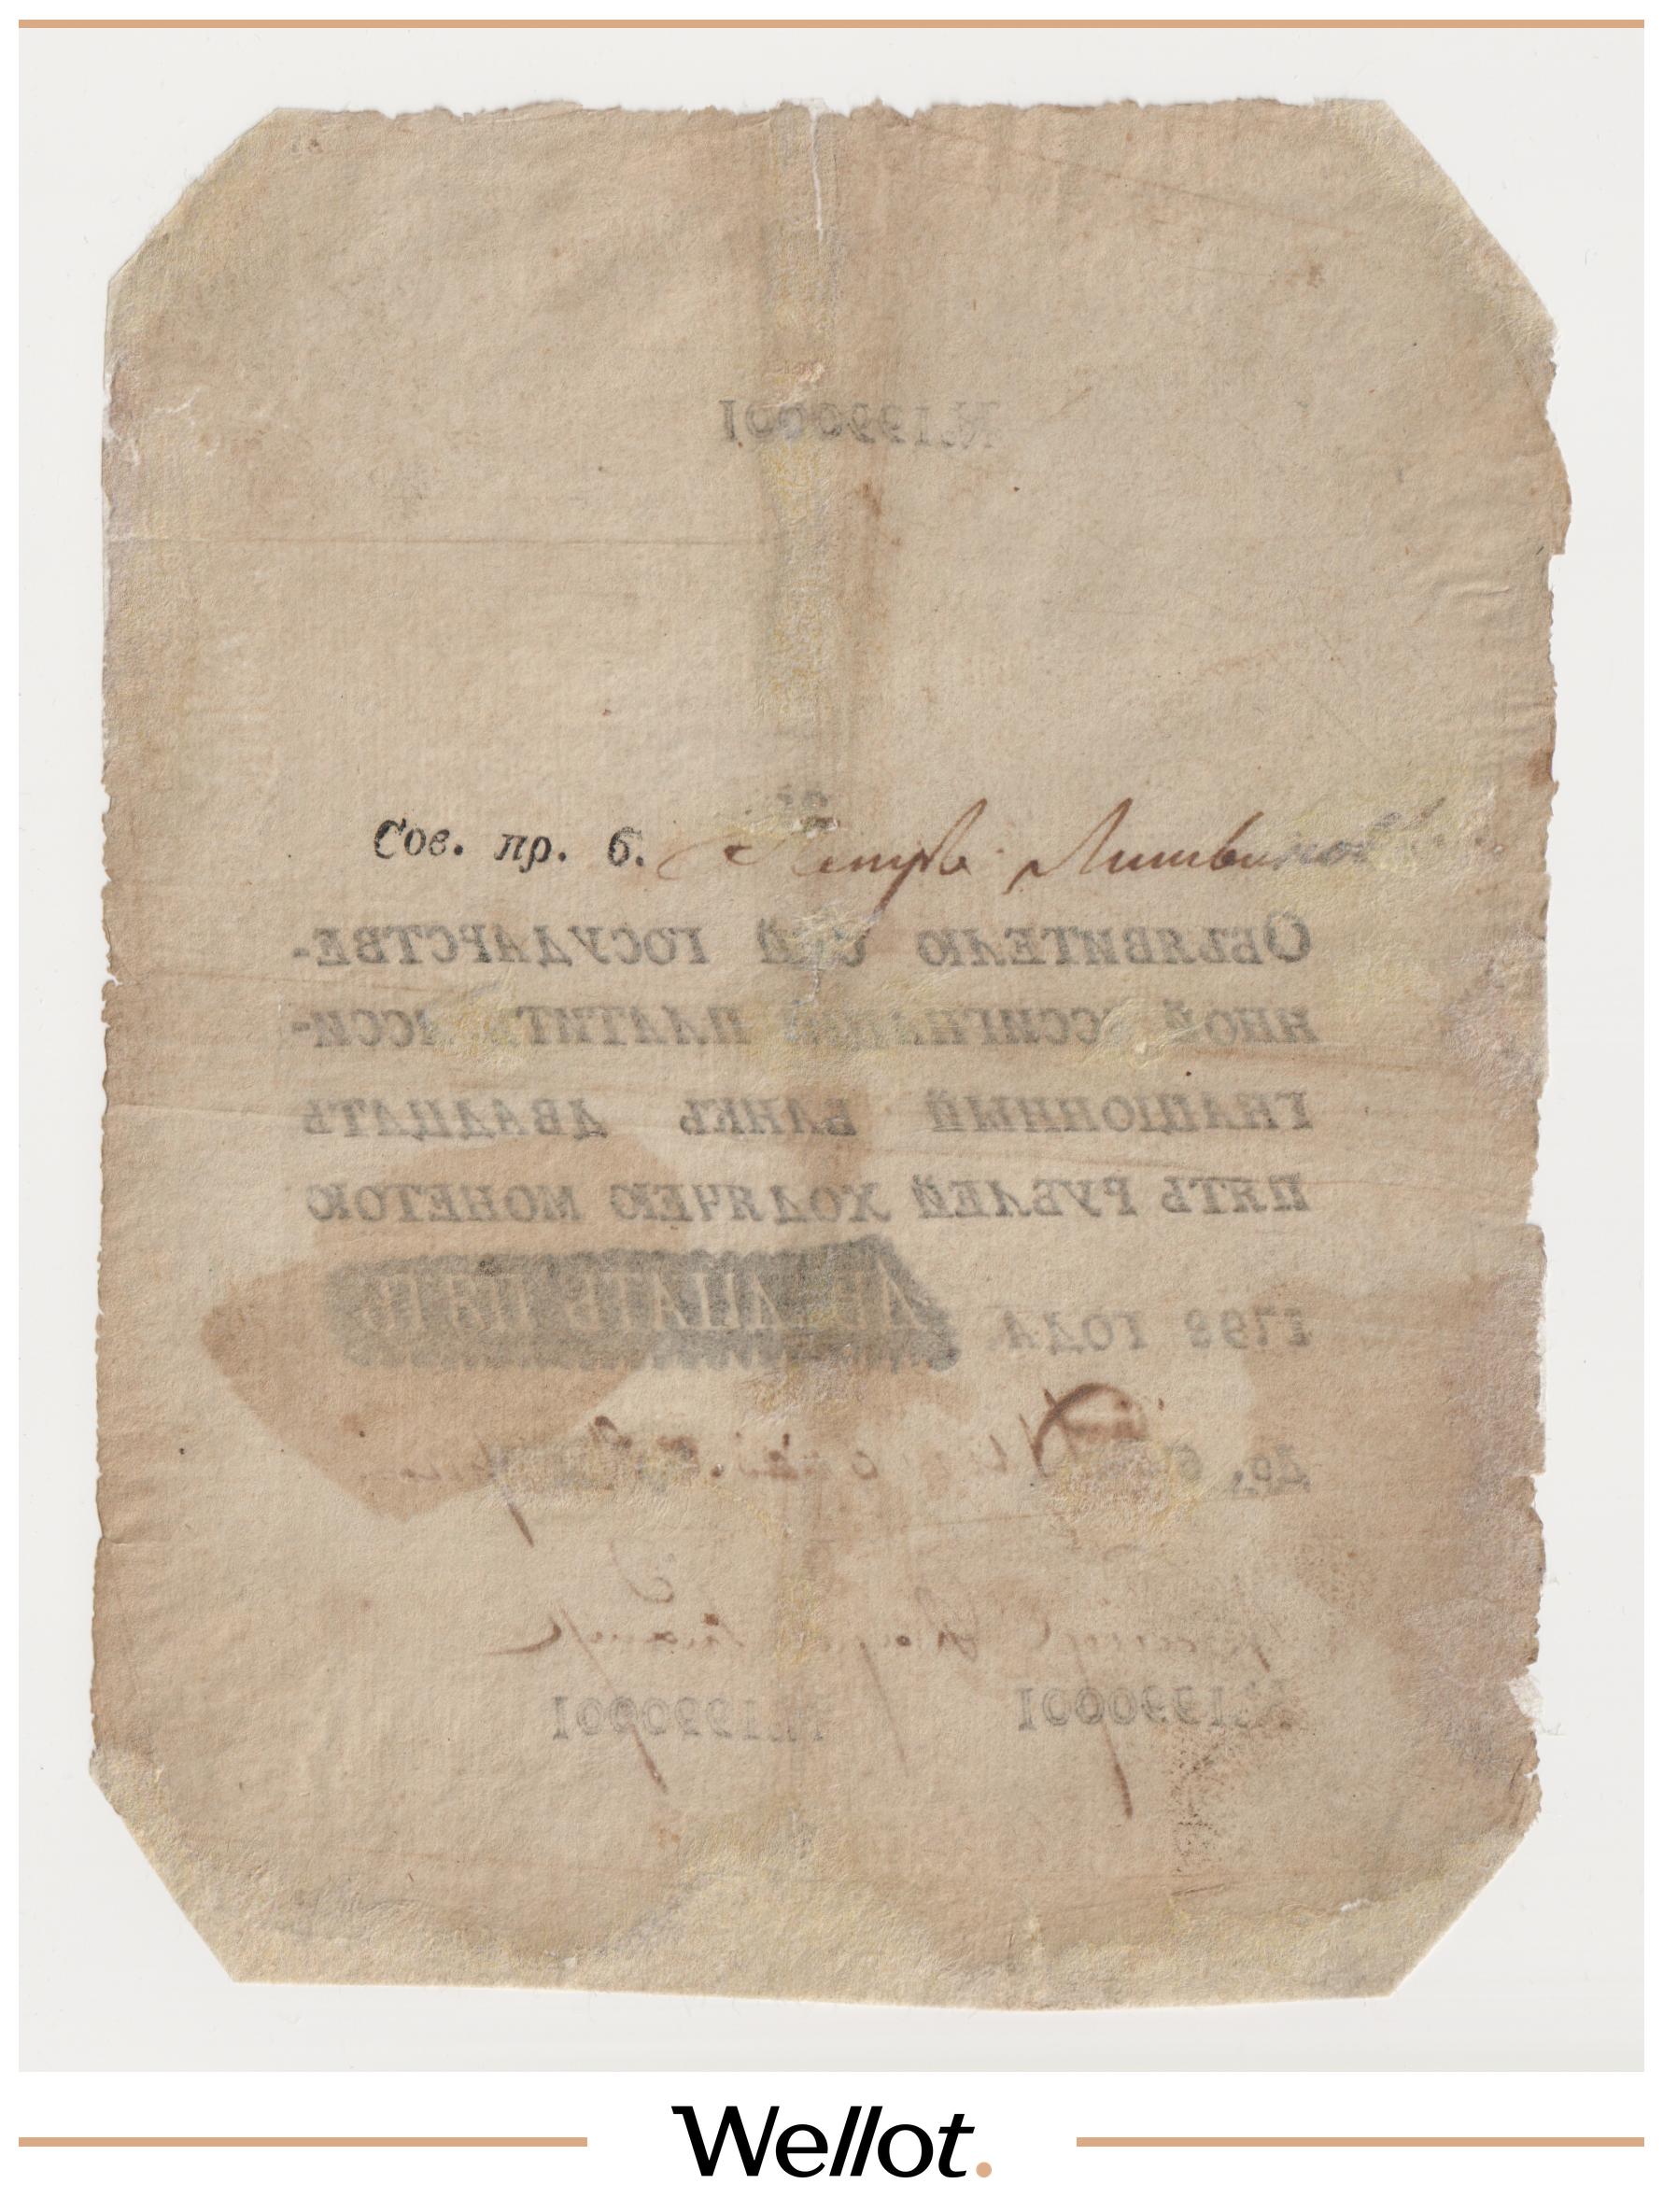 №1990001
Сов. пр. б. Петръ Литвинов
Объявителю сей государстве-
нной ассигнации платитъ асси-
гнационный банкъ двадцать
пять рублей ходячею монетою
1798 года ДВАДЦАТЬ ПЯТЬ
№1990001 №1990001
Wellot.